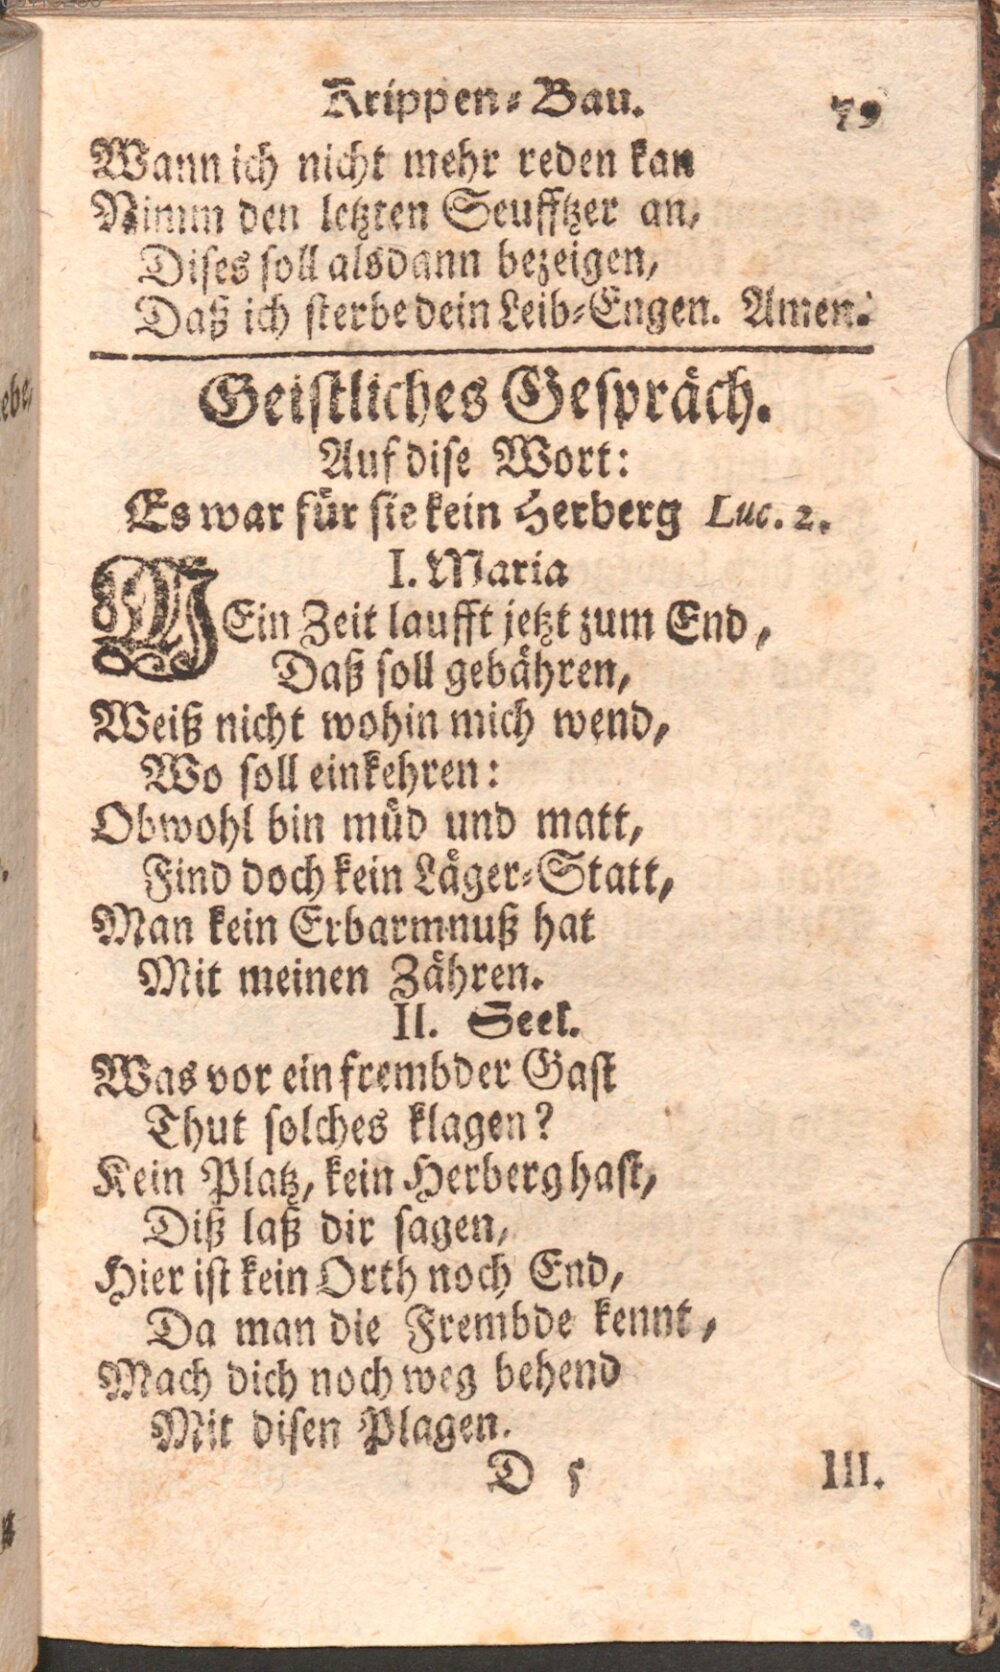 Krippen-Bau. 79
Wann ich nicht mehr reden kan
Nimm den letzten Seufftzer an,
Dises soll alsdann bezeigen,
Daß ich sterbe dein Leib-Engen. Amen.
Geistliches Gespräch.
Auf dise Wort:
Es war für sie kein Herberg Luc. 2.
I. Maria
MEin Zeit laufft jetzt zum End,
Daß soll gebähren,
Weiß nicht wohin mich wend,
Wo soll einkehren:
Obwohl bin müd und matt,
Find doch kein Läger-Statt,
Man kein Erbarmnuß hat
Mit meinen Zähren.
II. Seel.
Was vor ein frembder Gast
Thut solches klagen?
Kein Platz, kein Herberg hast,
Diß laß dir sagen,
Hier ist kein Orth noch End,
Da man die Frembde kennt,
Mach dich noch weg behend
Mit disen Plagen.
D 5 III.